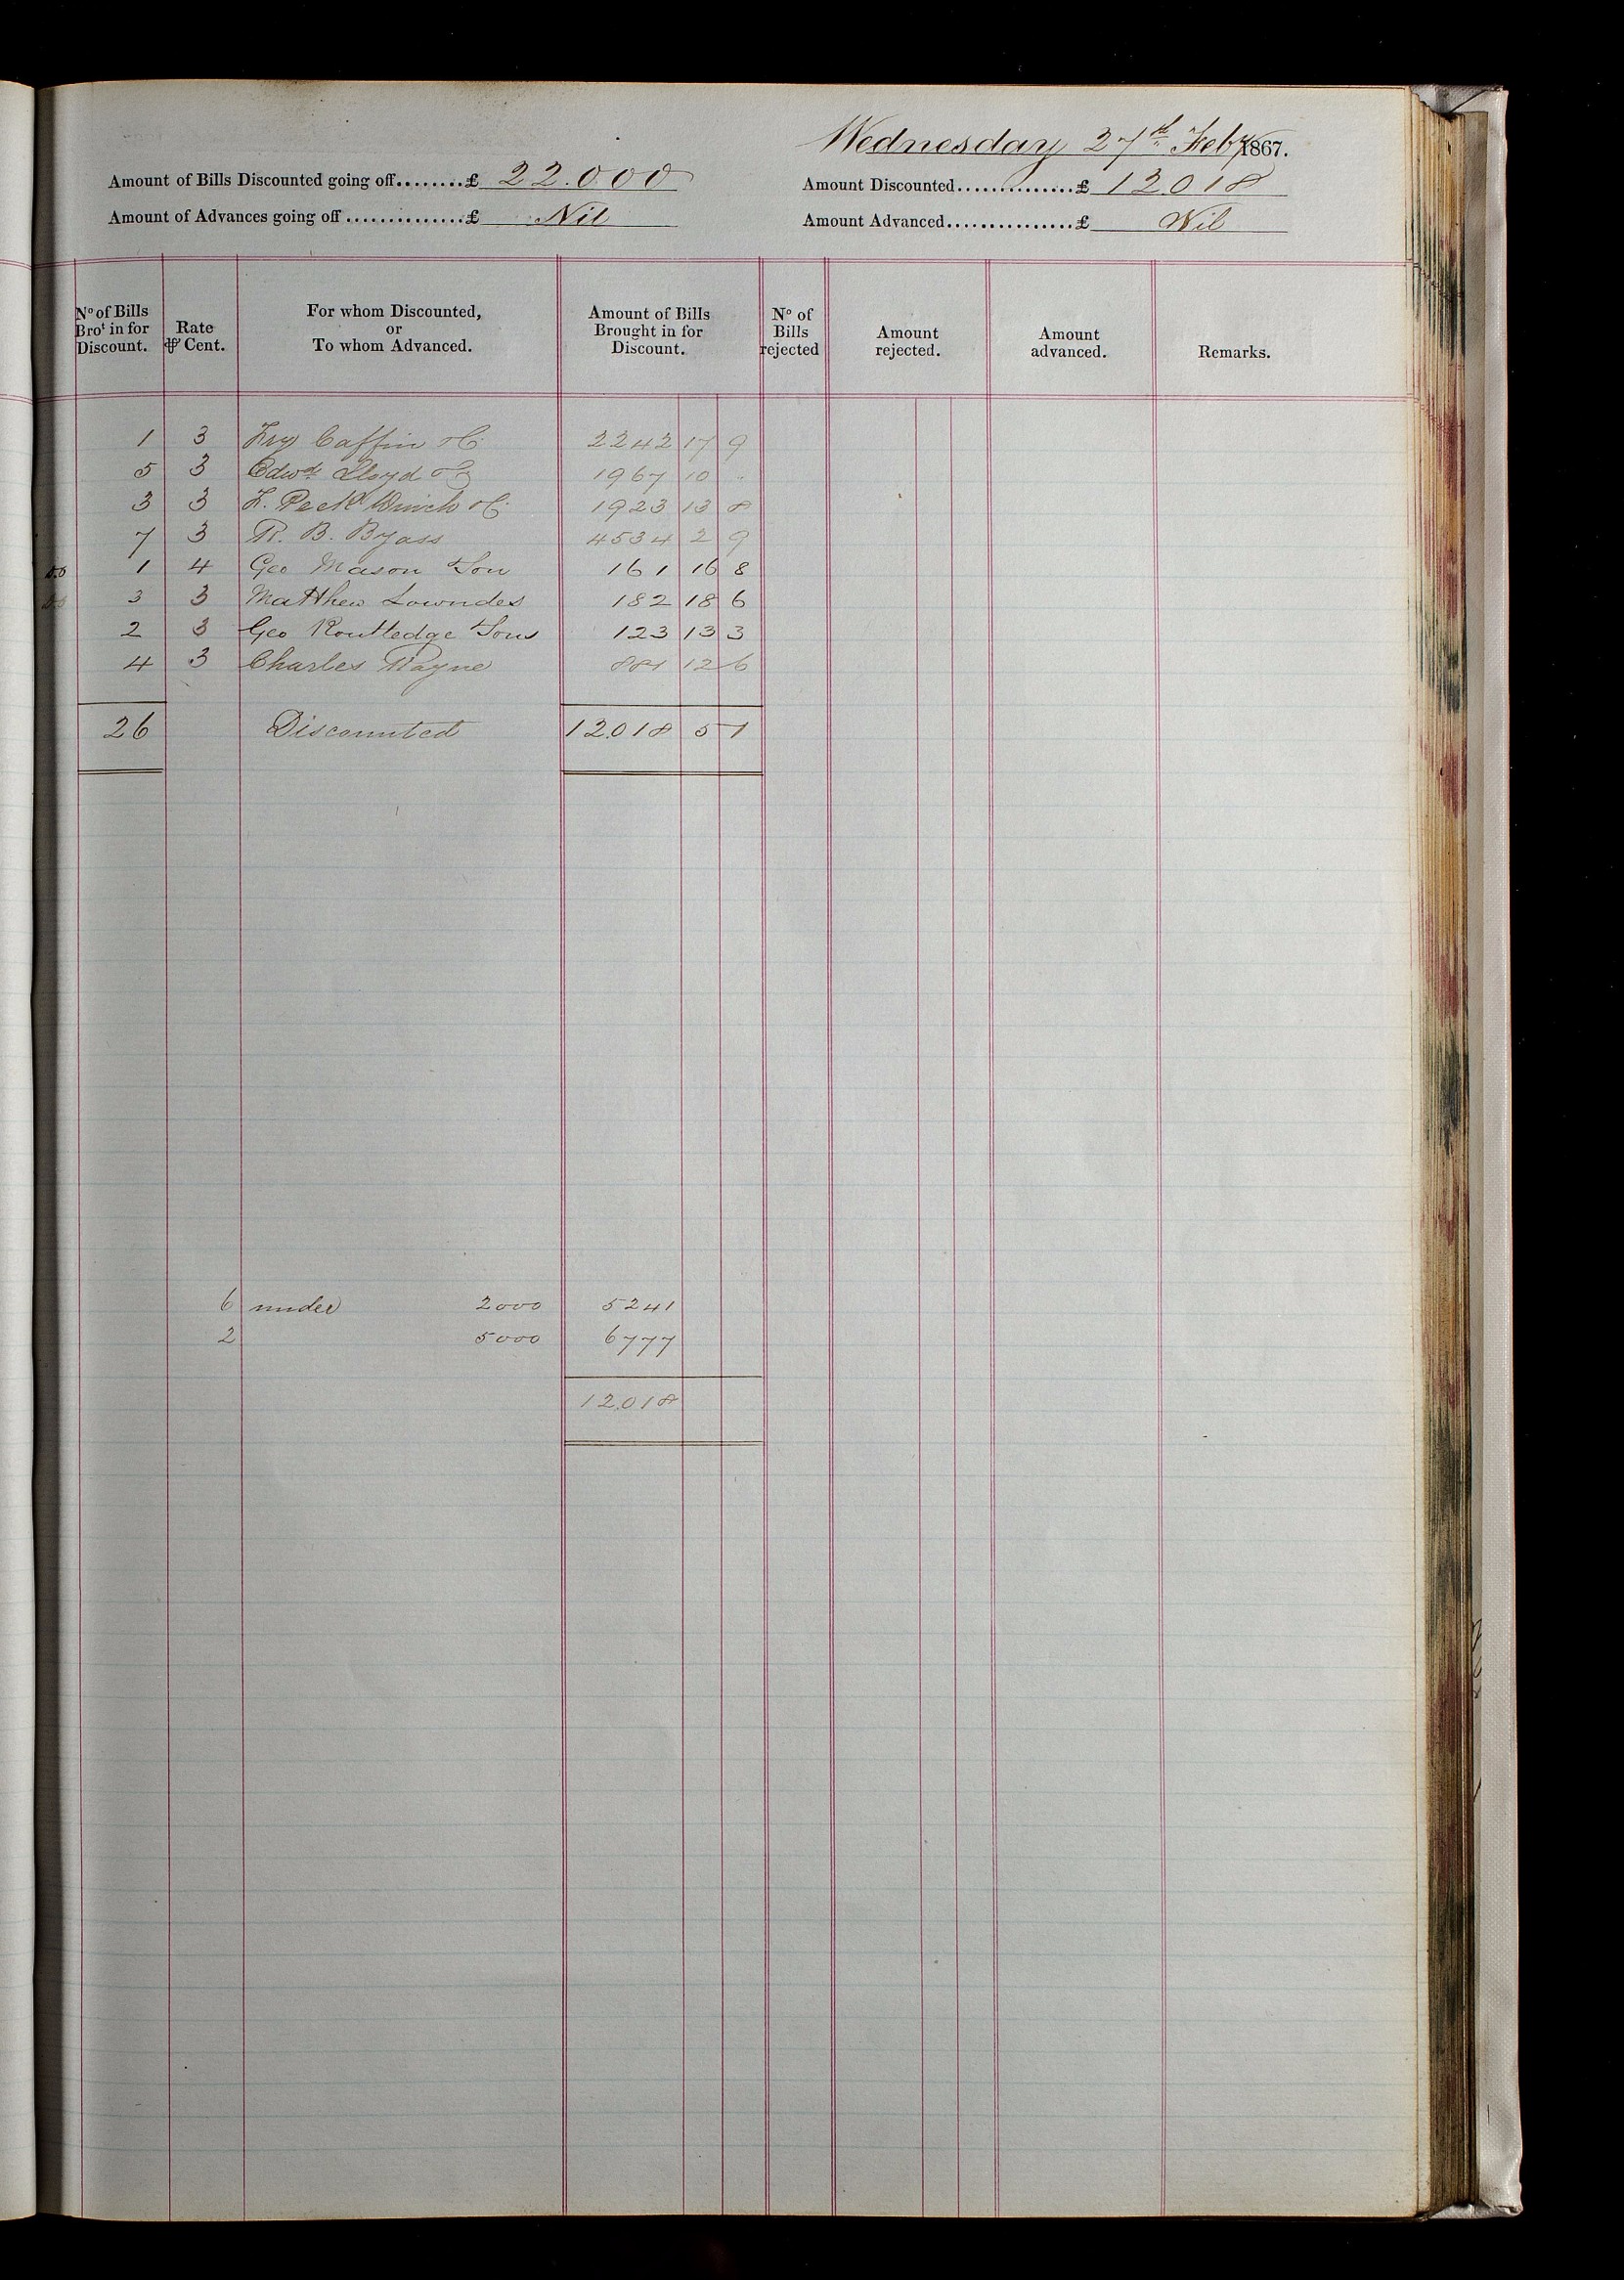 Wednesday 27th Feby 1867.
Amount of Bills Discounted going off........£ 22.000
Amount Discounted..............£ 12018
Amount of Advances going off..............£ Nil
Amount Advanced...............£ Nil
No of Bills Brot in for Discount.
Rate ⅌ Cent.
For whom Discounted, or To whom Advanced.
Amount of Bills Brought in for Discount.
No of Bills rejected
Amount rejected.
Amount advanced.
Remarks.
1 3 Fry Caffin &C. 2242 17 9
5 3 Edwd Lloyd &C 1967 10 .
3 3 F. Peek Winch &C. 1923 13 8
7 3 R. B. Byass 4534 2 9
1 4 Geo Mason & Son 161 16 8
3 3 Matthew Lowndes 182 18 6
2 3 Geo Routledge & Sons 123 13 3
4 3 Charles 881 12 6
26 Discounted 12.018 5 1
6 under 2000 5241
2 5000 6777
12.018